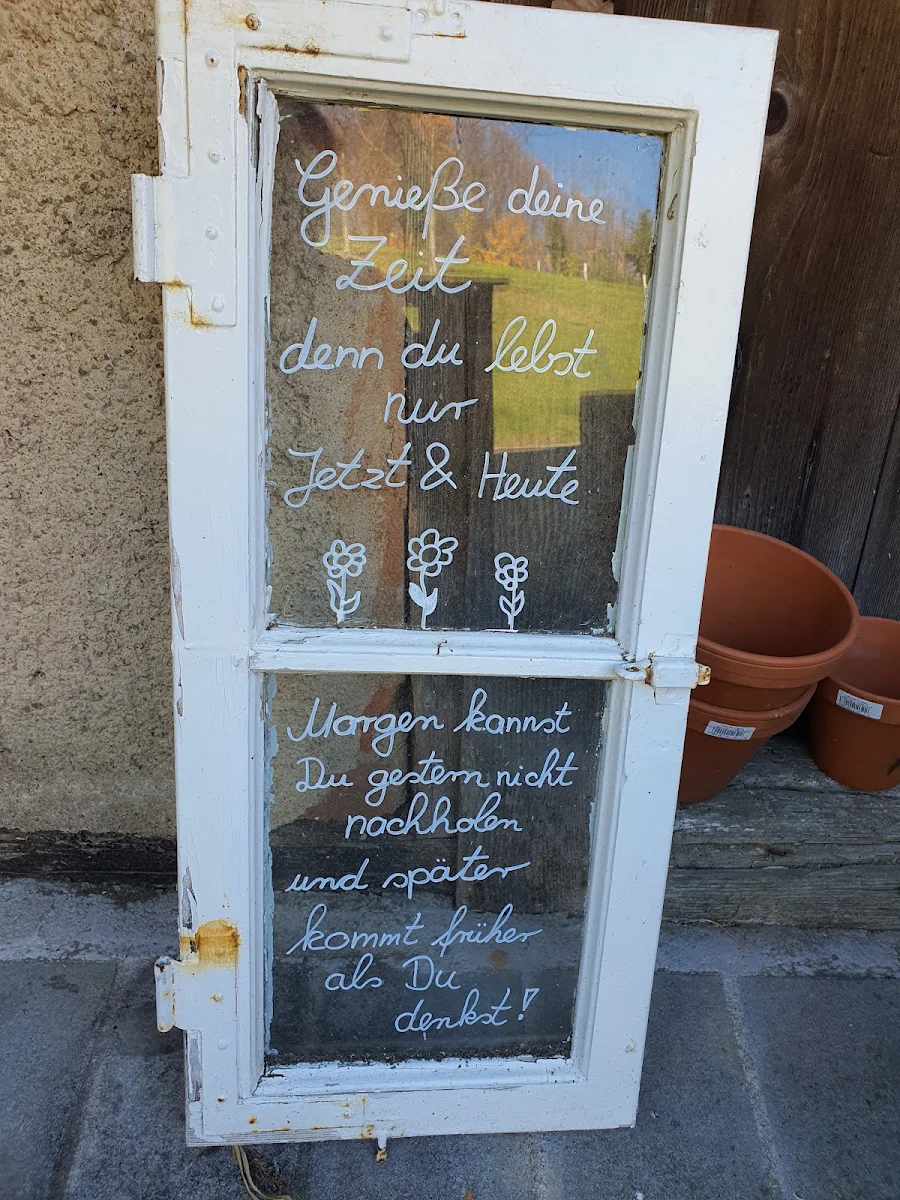 Genieße deine
Zeit
denn du lebst
nur
Jetzt & Heute
Morgen kannst
Du gestern nicht
nachholen
und später
kommt früher
als Du
denkst!